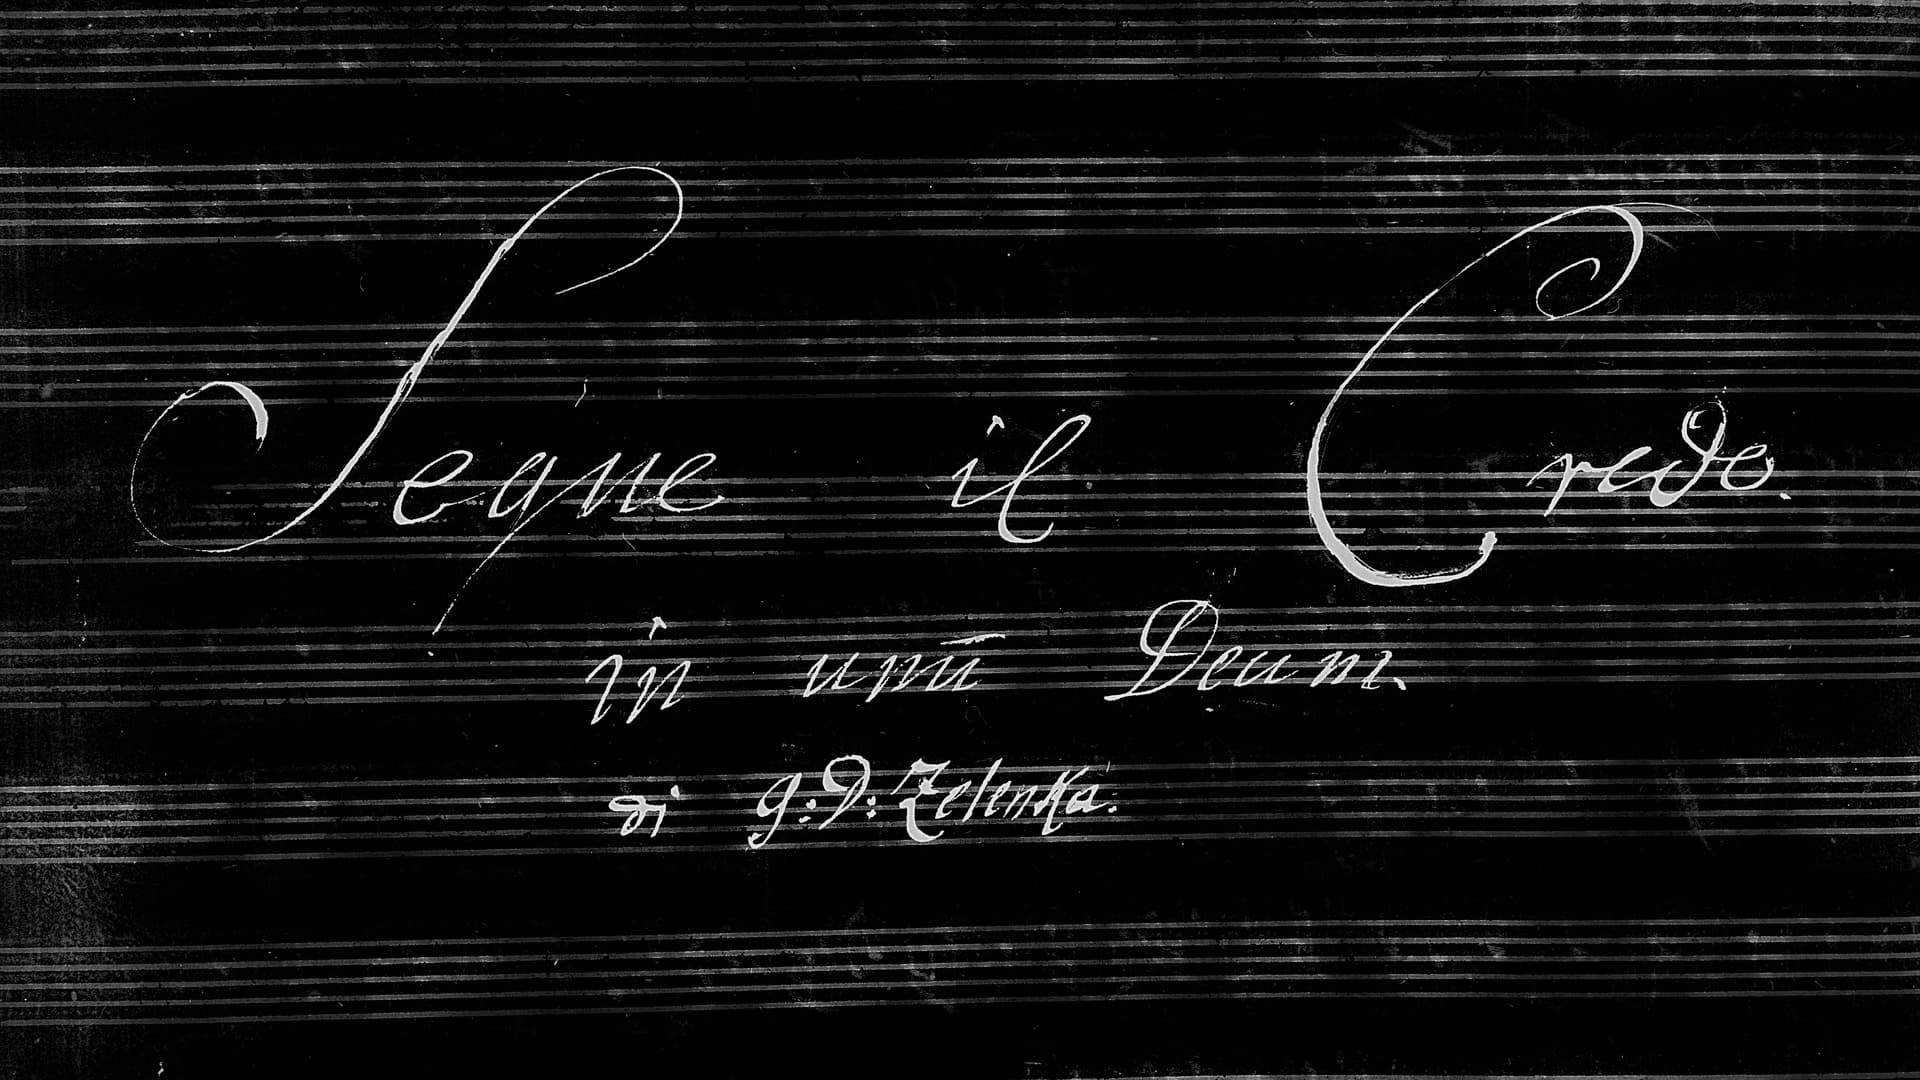 Segue il Credo.
in unū Deum.
di G: D: Zelenka.